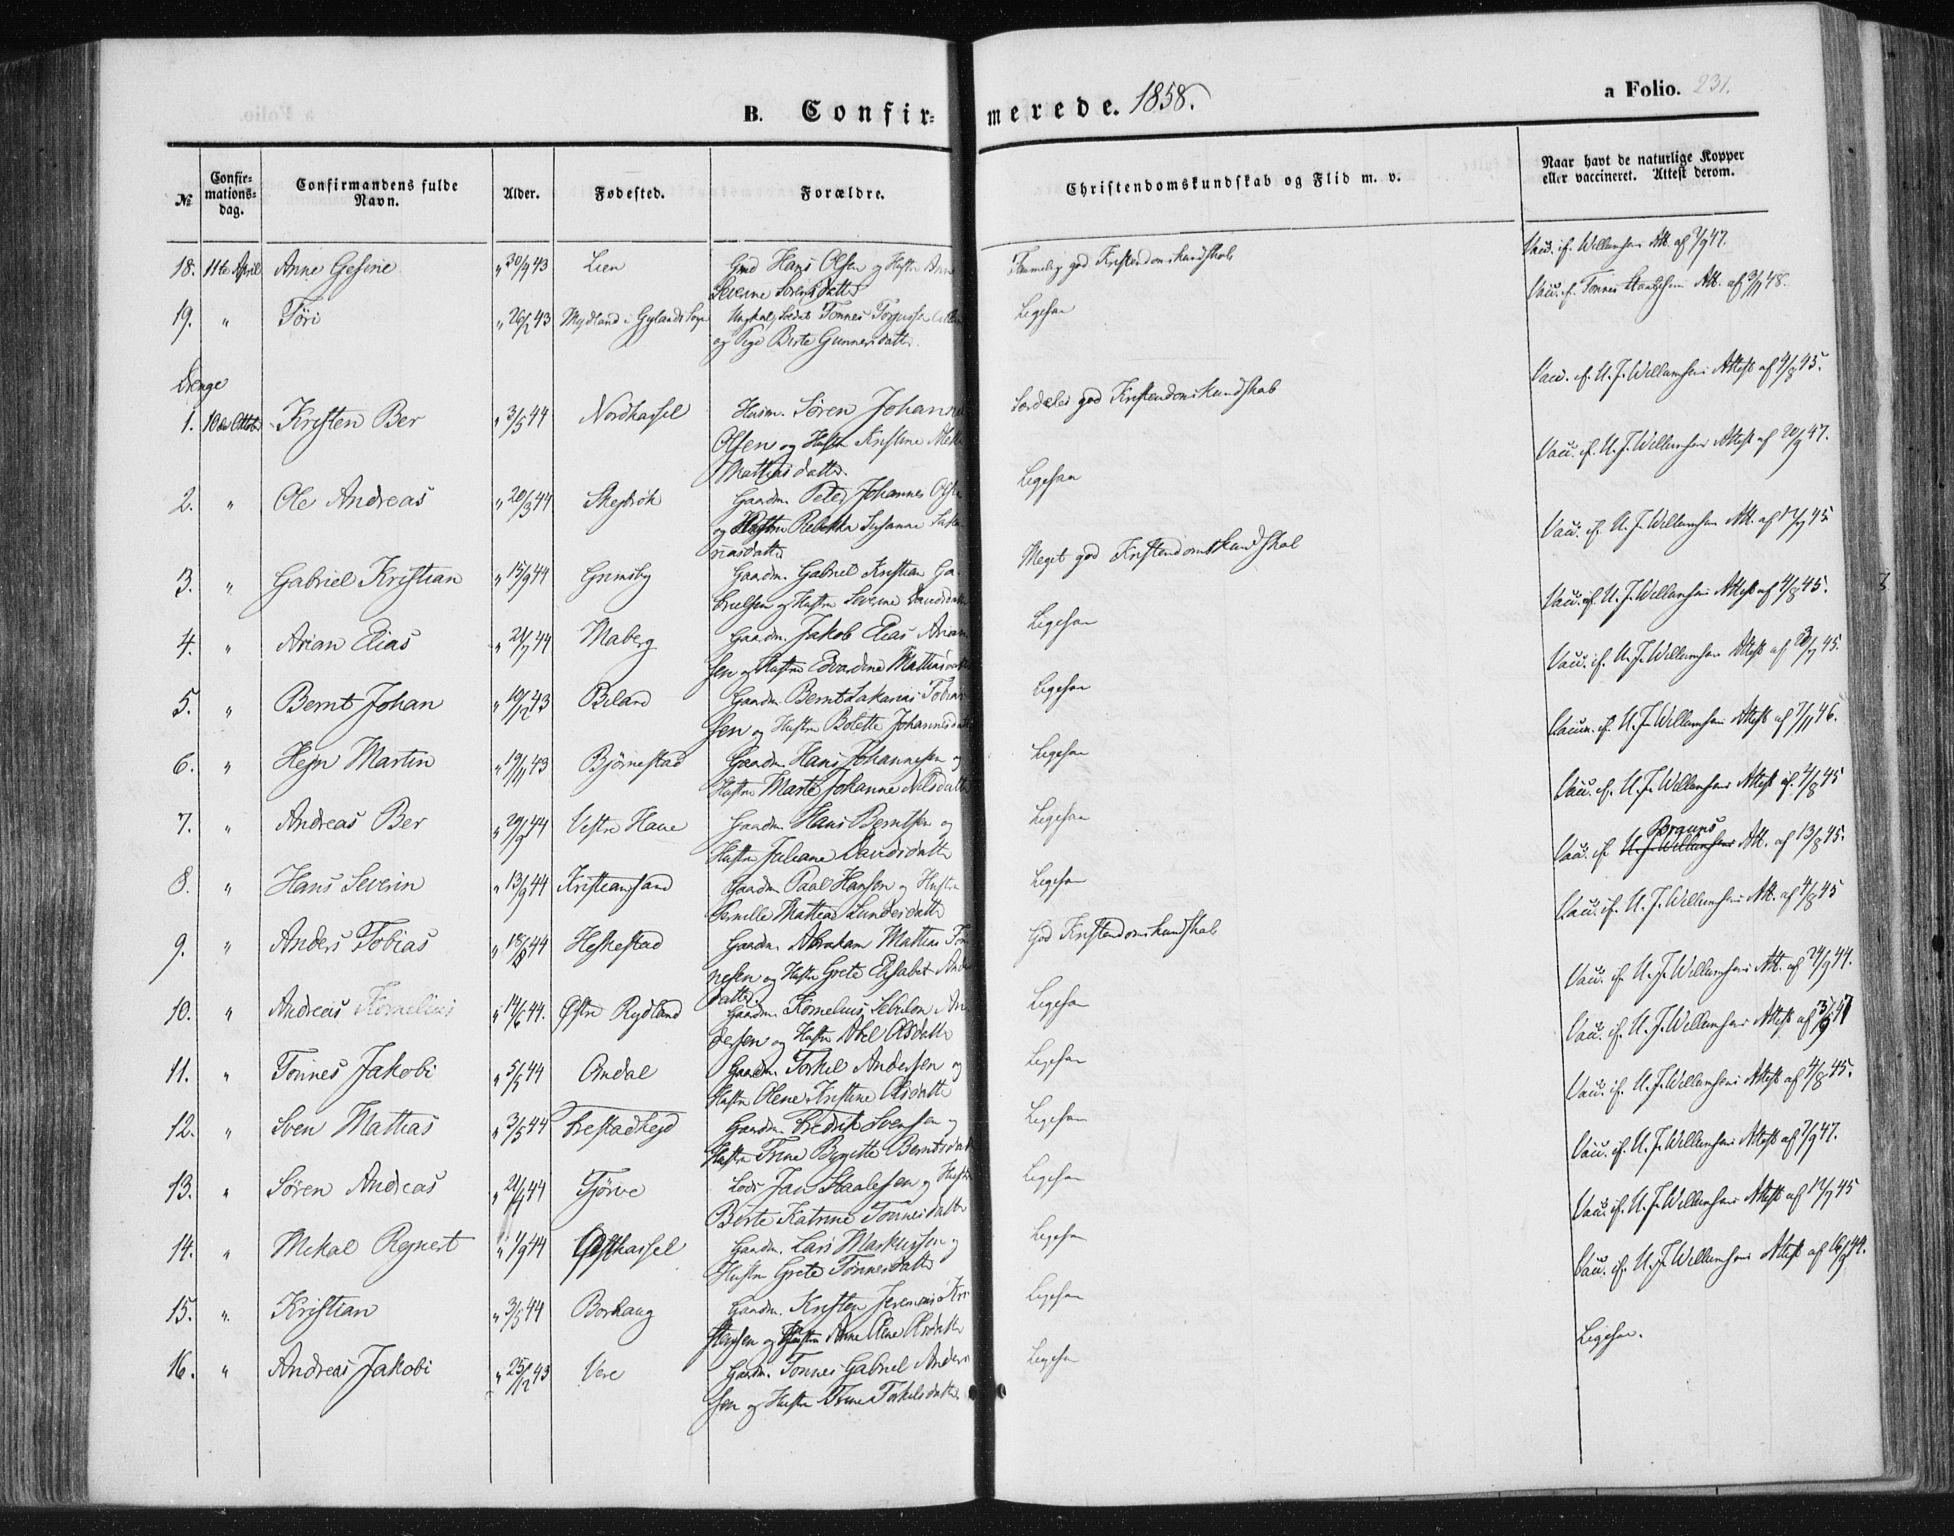 B. Confir-
merede. 1858.
a Folio. 231.
№
Confir-
mations-
dag.
Confirmandens fulde
Navn.
Alder.
Fødested.
Forældre.
Christendomskundskab og Flid m. v.
Naar havt de naturlige Kopper
eller vaccineret. Attest derom.
18. 11te April Anne Gesine " 30/9 43 Lien Gmd Hans Olsen og Hustr Anne
Severine Sørensdatter
Temmelig god Kristendomskundskab
Vacc. if. Willumsens Att. af 7/9 47.
19. " Töri " 26/2 43 Mydland i Gylands Sogn Ungkarl Tønnes Torjussen
og Pige Berte Gunnersdatter.
Ligesaa
Vacc. if. Tønnes Att. af 48.
Drenge
1. 10de Oktob. Kristen Ber " 3/5 44 Nordhassel Husm. Søren Johannes
Olsen og Hustr Kristine Mette
Mathiasdatter
Særdeles god Kristendomskundskab
Vacc. if. U. J. Willumsens Attest af 4/8 45.
2. " Ole Andreas " 20/3 44 Skeibrok Gaardm. Peter Johannes Olsen
og Hustru Rebekka Susanne Saka-
riasdatter
Ligesaa
Vacc. if. U. J. Willumsens Attest af 20/9 47.
3. " Gabriel Kristian " 15/9 44 Grimsby Gaardm. Gabriel Kristian Ga-
brielsen og Hustru Severine Davidsdatter
Meget god Kristendomskundskab
Vacc. if. U. J. Willumsens Att. af 17/7 45
4. " Arian Elias " 21/7 44 Maberg Gaardm. Jakob Elias Arian-
sen og Hustru Edvardine Mathiasdatter
Ligesaa
Vacc. if. U. J. Willumsens Attest af 4/8 45.
5. " Bernt Johan " 10/12 43 Biland Gaardm. Bernt Sakarias Tobias-
sen og Hustru Bolette Johannesdatter
Ligesaa
Vacc. if. U. J. Willumsens Attest af 45.
6. " Hejn Martin " 19/11 43 Bjørnestad Gaardm. Hans Johannesen og
Hustru Marte Johanne Nilsdatter
Ligesaa
Vaccin. if. U. J. Willumsens Attest af 7/11 46.
7. " Andreas Ber " 29/9 44 Vestre Haue Gaardm. Hans Berntsen og
Hustru Juliane Davidsdatter
Ligesaa
Vacc. if. U. J. Willumsens Attest af 4/8 45
8. " Hans Severin " 13/9 44 Kristiansand Gaardm. Paal Hansen og Hustru
Pernille Mathea Lundesdatter
Ligesaa
Vacc. if. Brauns Att. af 13/8 45.
9. " Anders Tobias " 18/8 44 Heskestad Gaardm. Abraham Mathias Tøn-
nesen og Hustr Grete Elisabet Anders-
datter.
God Kristendomskundskab
Vacc. if. U. J. Willumsens Att. af 4/8 45
10. " Andreas Kornelius " 14/6 44. Østre Rydland Gaardm. Kornelius Sebulon An-
dersen og Hustr Abel Olsdatter
Ligesaa
Vacc. if. U. J. Willumsens Att. af 24/9 44.
11. " Tønnes Jakobi " 5/5 44 Ondal Gaardm. Torkel Andersen og
Hustru Olene Kristine Olsdatter
Ligesaa
Vacc. if. U. J. Willumsens Attest af 47
12. " Sven Mathias " 3/5 44 Frestadhejd Gaardm. Fredrik Svensen og
Hustru Trine Birgitte Berntsdatter
Ligesaa
Vacc. if. U. J. Willumsens Attest af 4/8 45.
13. " Søren Andreas " 21/7 44 Tjørve Lods Jan Staalesen og Hustru
Berte Katrine Tønnesdatter
Ligesaa
Vacc. if. U. J. Willumsens Attest af 7/9 47.
14. " Mikal Regnert " 1/9 44 Østhassel Gaardm. Lars Markussen og
Hustru Grete Tønnesdatter
Ligesaa
Vacc. if. U. J. Willumsens Attest af 17/7 45
15. " Kristian " 3/5 44 Borhaug Gaardm. Kristen Jeremias Kri-
stensen og Hustru Anne Elene Olsdatter
Ligesaa
Vacc. if. U. J. Willumsens Attest af 16/9 44.
16. " Andreas Jakobi " 25/12 43 Vere Gaardm. Tønnes Gabriel Ander-
sen og Hustr Trine Torkelsdatter
Ligesaa
Ligesaa.